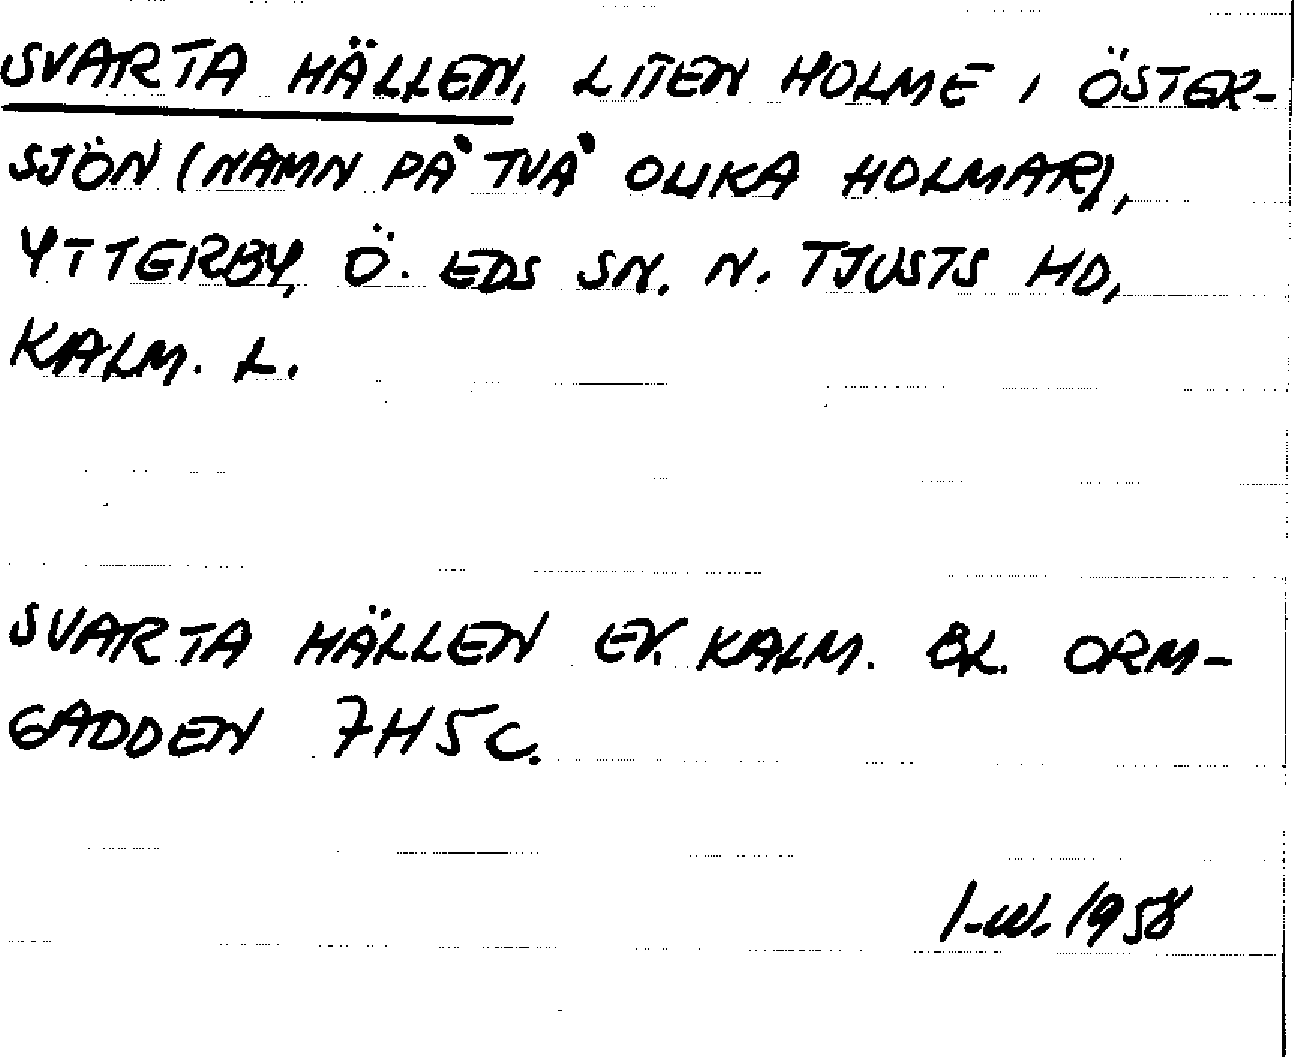 SVARTA HÄLLEN, LITEN HOLME I ÖSTER-
SJÖN (NAMN PÅ TVÅ OLIKA HOLMAR),
YTTERBY, Ö. EDS SN. N. TJUSTS HD,
KALM. L.
SVARTA HÄLLEN EK. KALM. BL. ORM-
GADDEN 7H5C.
I-W. 1958